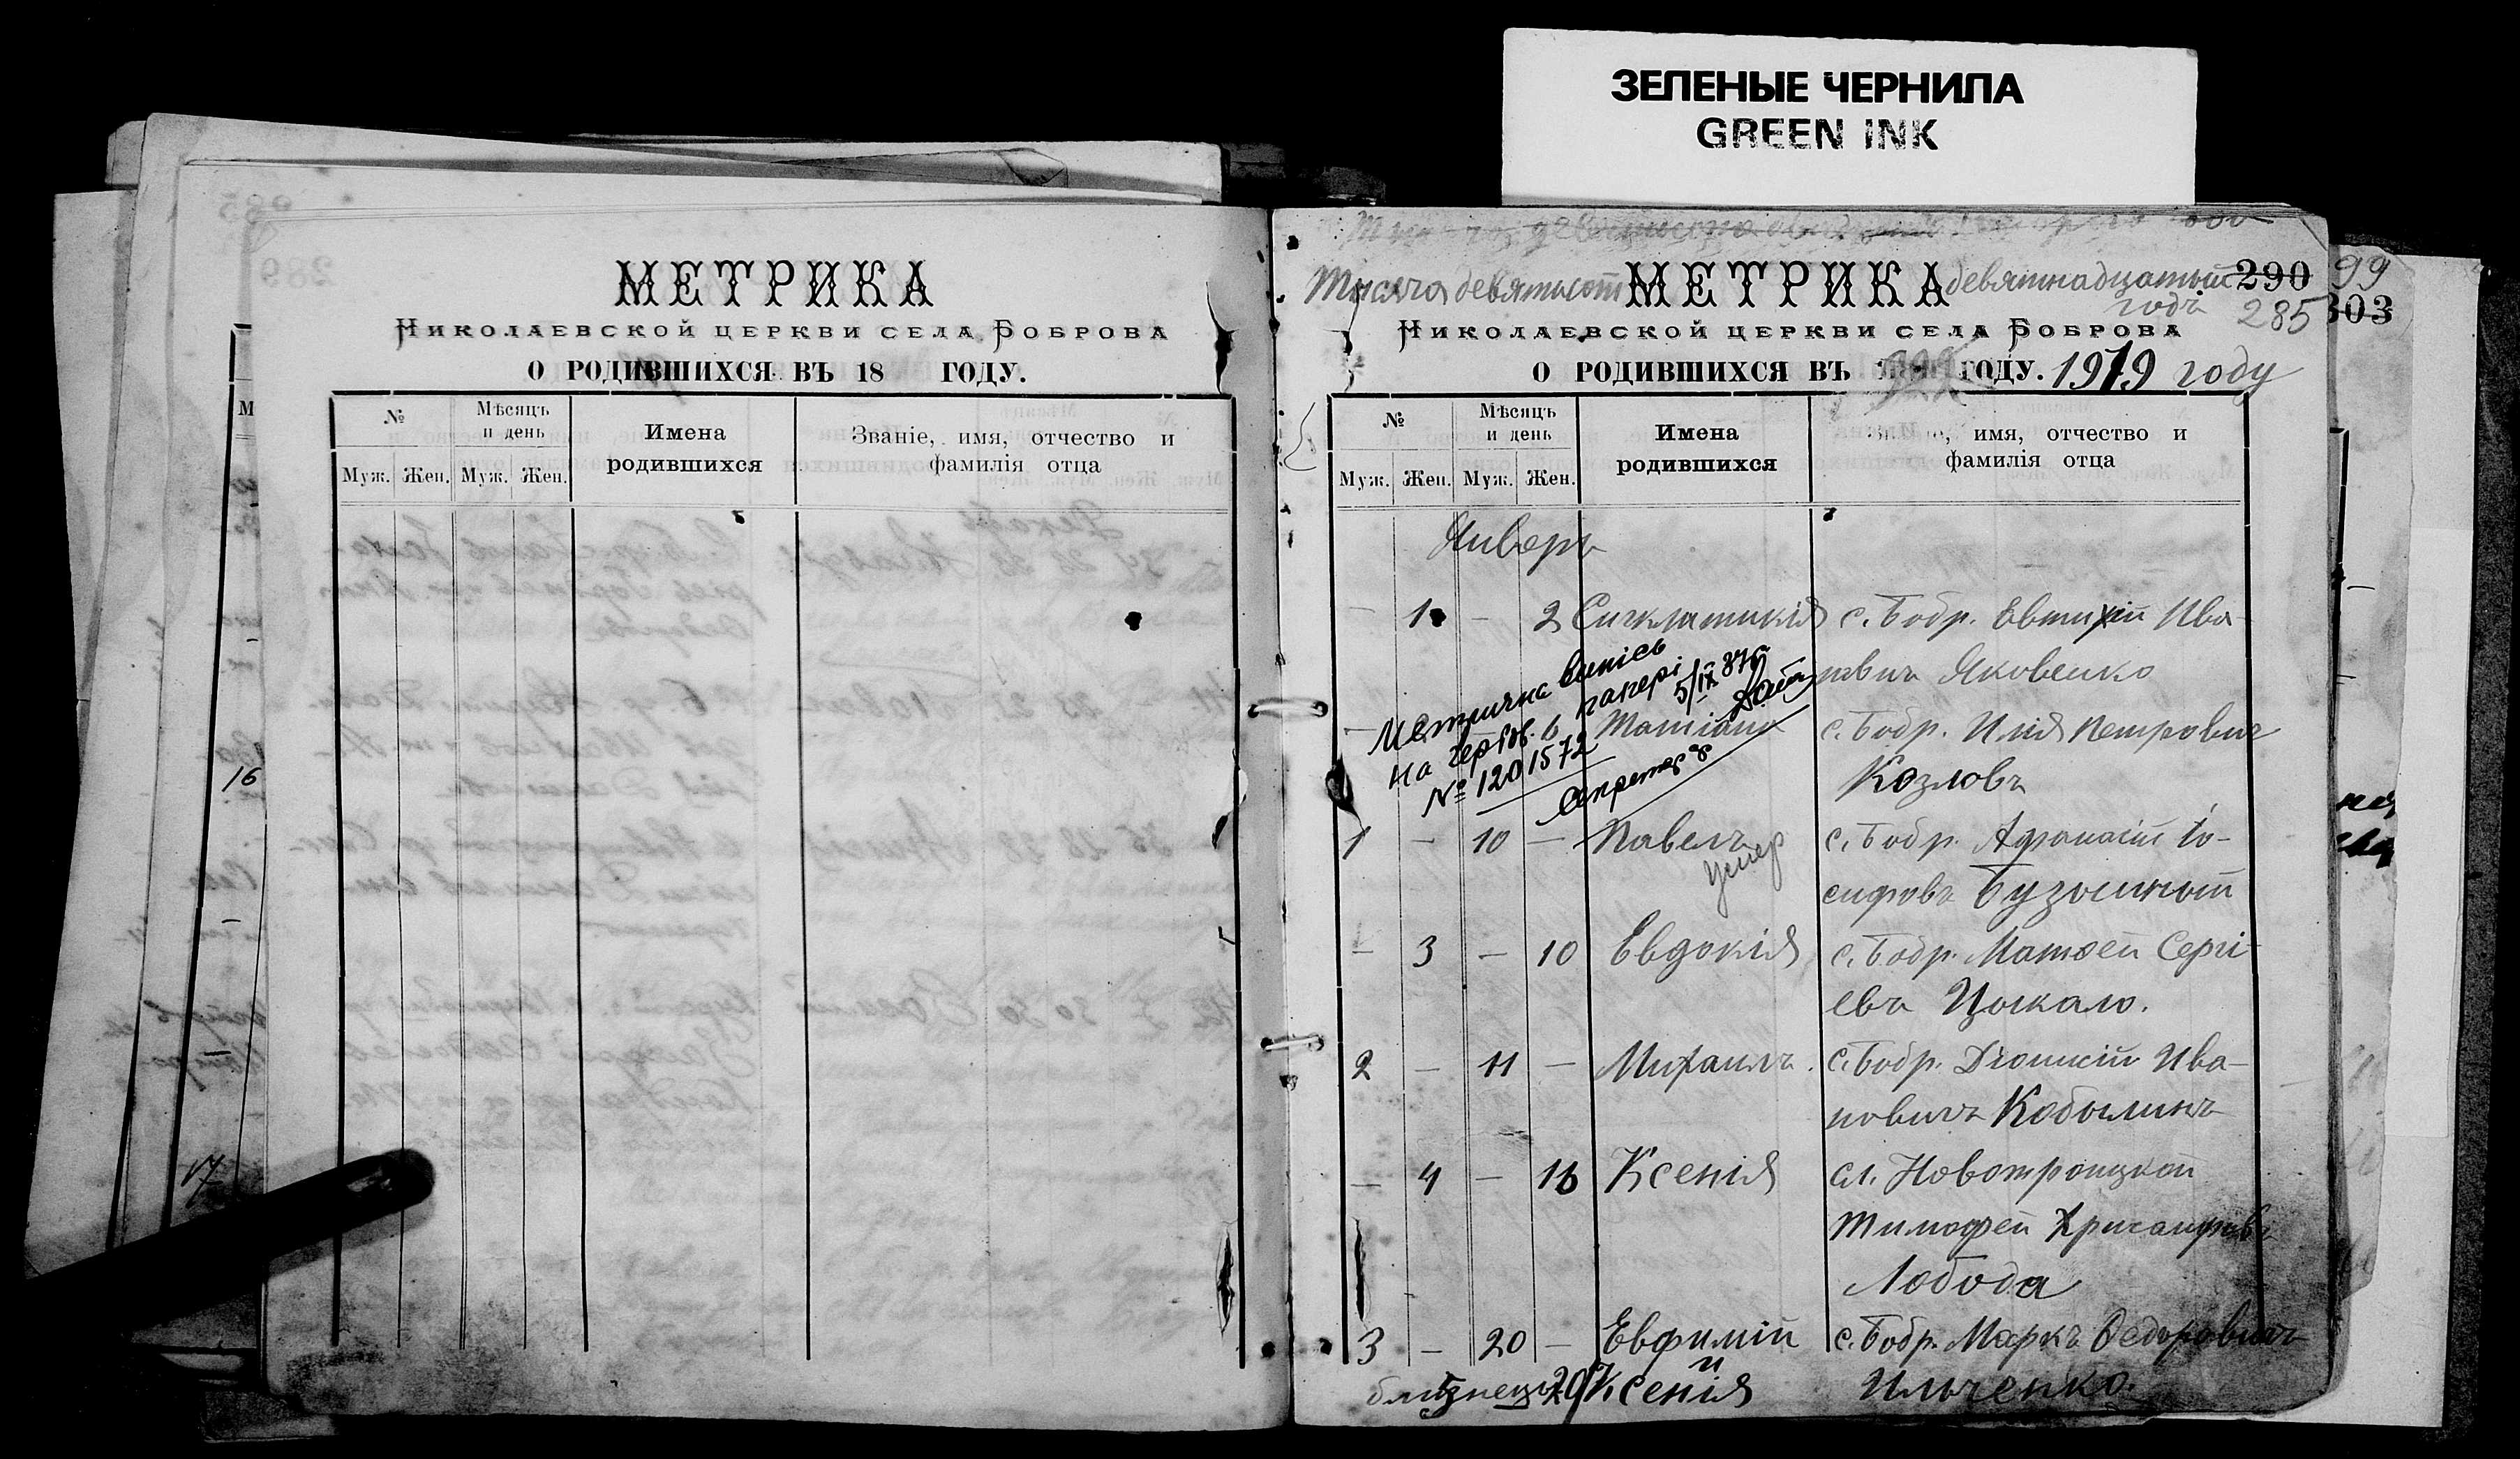 ЗЕЛЕНЫЕ ЧЕРНИЛА
GREEN INK
МЕТРИКА
Николаевской церкви села Боброва
О РОДИВШИХСЯ ВЪ 18 ГОДУ.
№
Мѣсяцъ и день
Имена родившихся
Званіе, имя, отчество и фамилія отца
Муж. Жен. Муж. Жен.
16
17
Тысяча девятьсот МЕТРИКА девятнадцатый годъ
290 99
285 303
Николаевской церкви села Боброва
О РОДИВШИХСЯ ВЪ ГОДУ. 1919 году
№
Мѣсяцъ и день
Имена родившихся
имя, отчество и фамилія отца
Муж. Жен. Муж. Жен.
Январь
— 1 — 2 Синклитикія с. Бобр. Евтихій Ива-
новичъ Яковенко
Метрична випісь
на
№ 1201572
5/IX 37
— Татіана с. Бобр. Илія Петровичъ
Козловъ
1 — 10 — Павелъ с. Бобр. Афанасій Іо-
умер
сифовъ
— 3 — 10 Евдокія с. Бобр. Матѳей Сергі-
евъ Цыкало.
2 — 11 — Михаилъ. с. Бобр. Діонисій Ива-
новичъ Кобылинъ
— 4 — 16 Ксенія сл. Новотроицкой
Тимофей Хрисанфовъ
Лобода
3 — 20 — Евфимій с. Бобр. Маркъ Ѳедоровичъ
и
близнецы 20 Ксенія Ильченко.